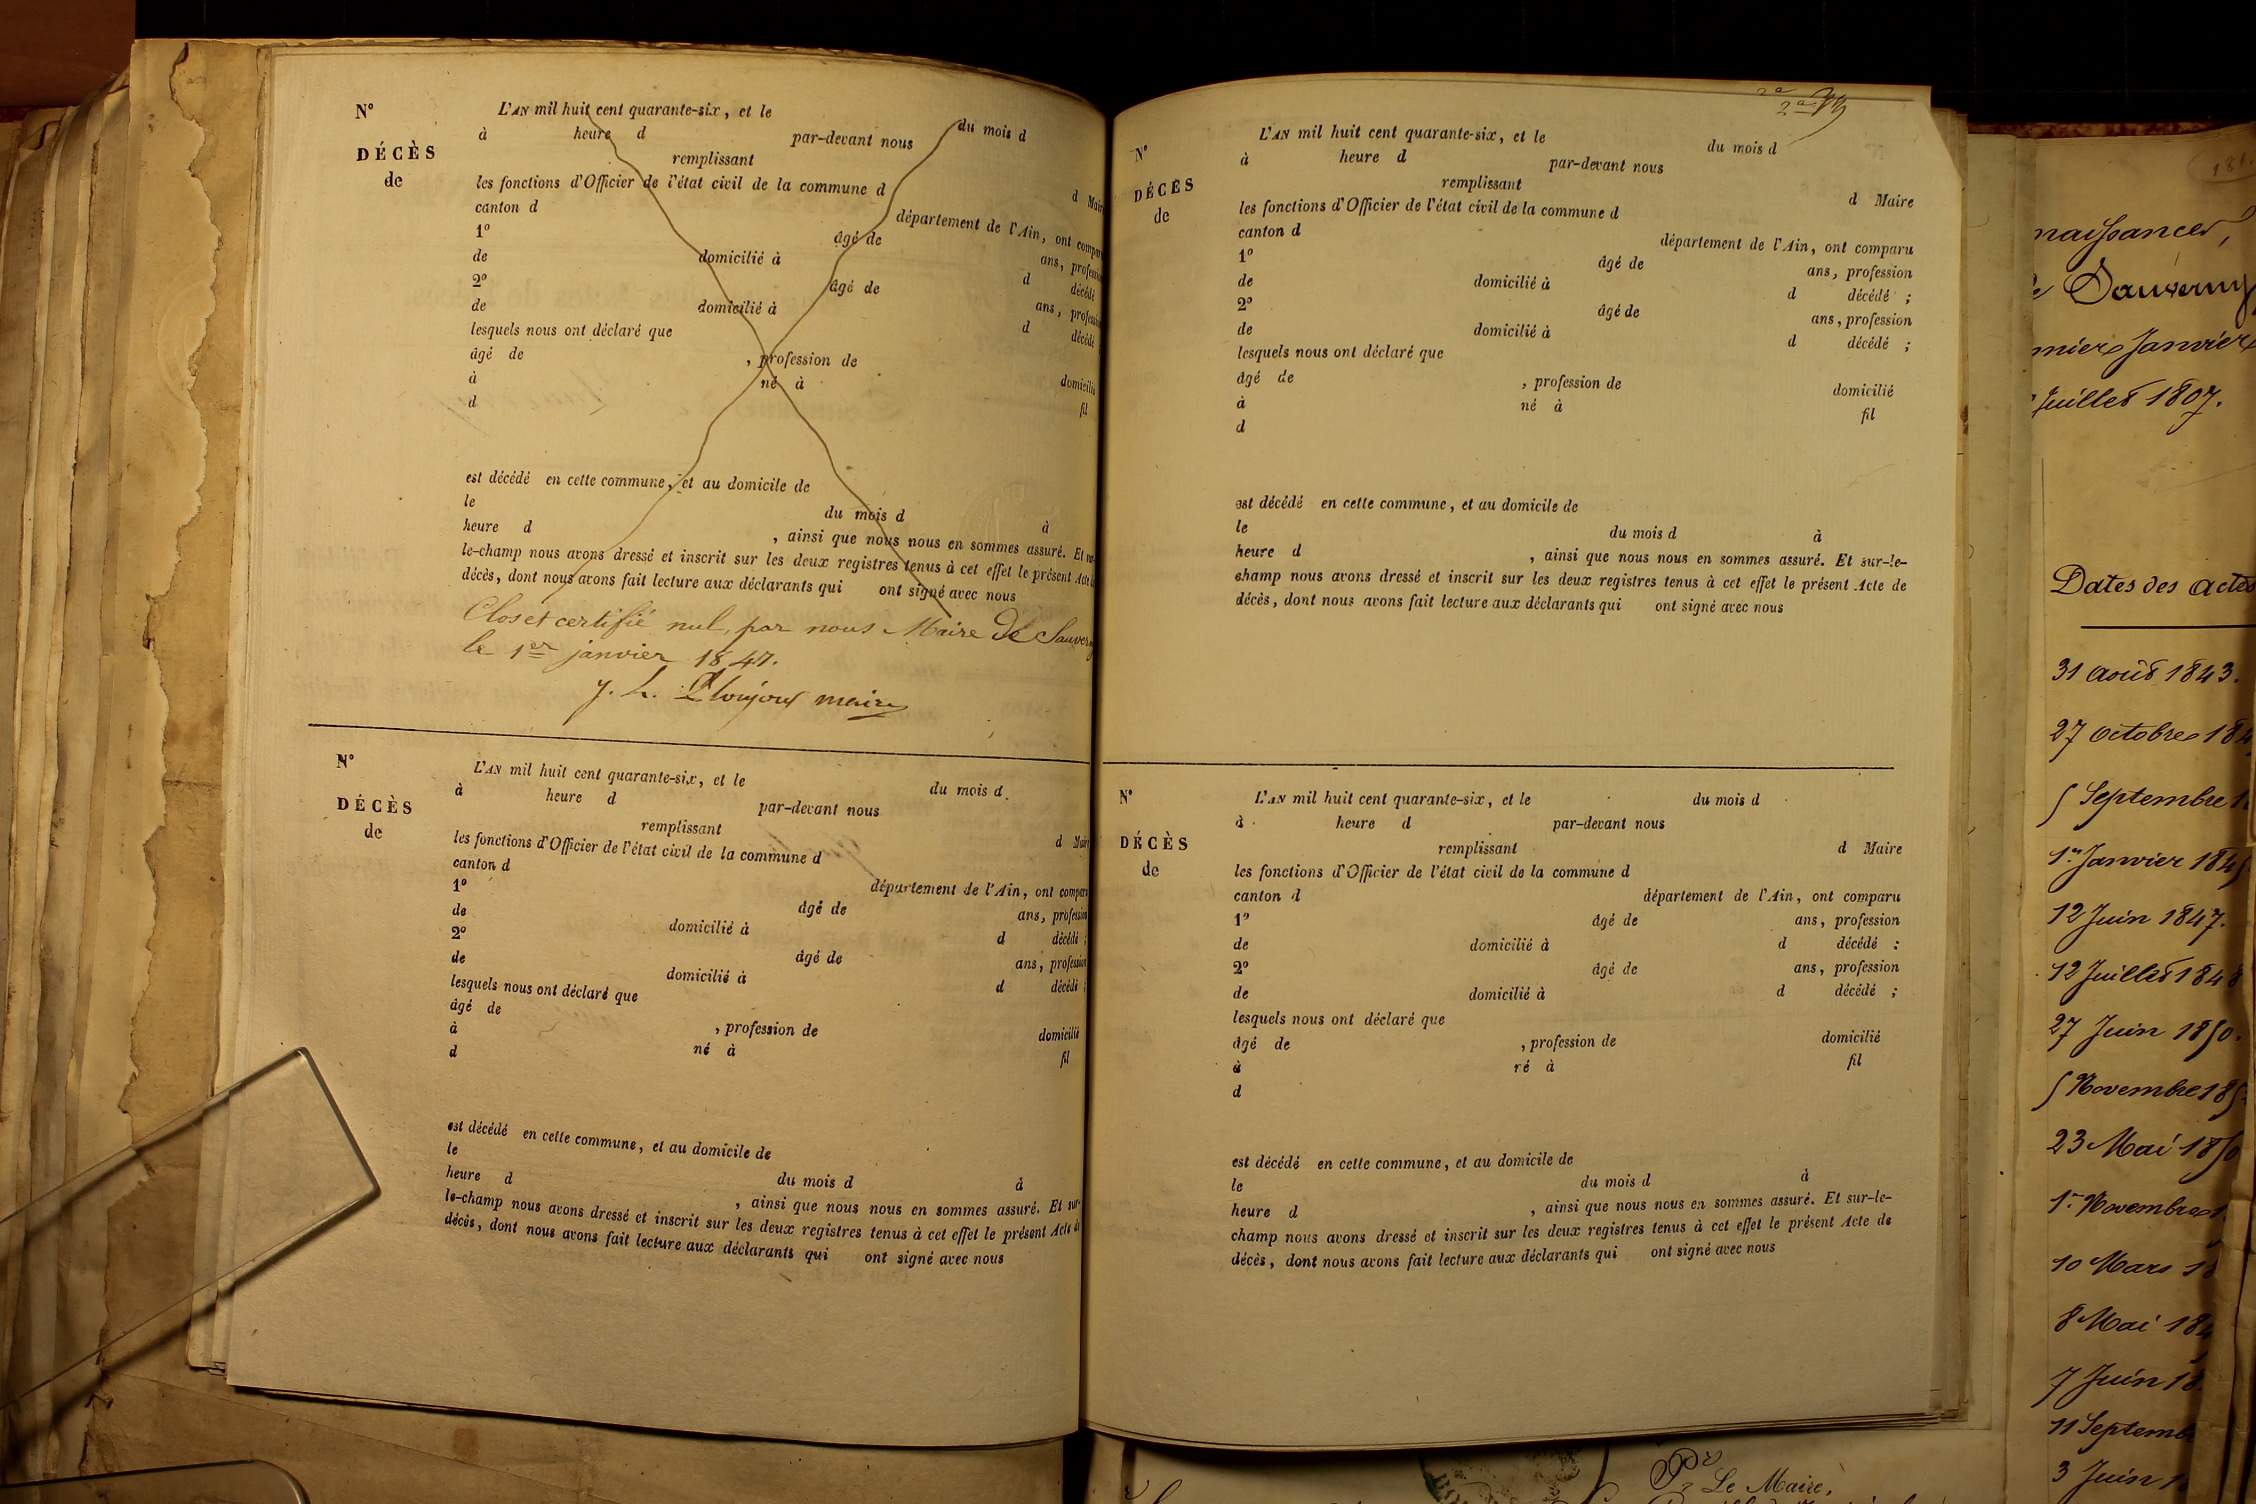 N° L'AN mil huit cent quarante-six, et le du mois d
à heure d par-devant nous
DÉCÈS remplissant d Maire
de les fonctions d'Officier de l'état civil de la commune d
canton d département de l'Ain, ont comparu
1° âgé de ans, profession
de domicilié à d décédé
2° âgé de ans, profession
de domicilié à d décédé
lesquels nous ont déclaré que
âgé de , profession de domicilié
à né à fil
d
est décédé en cette commune, et au domicile de
le du mois d à
heure d , ainsi que nous nous en sommes assuré. Et sur-
le-champ nous avons dressé et inscrit sur les deux registres tenus à cet effet le présent Acte de
décès, dont nous avons fait lecture aux déclarants qui ont signé avec nous
Clos et certifié nul, par nous Maire de Sauverny
le 1er janvier 1847.
maire
N° L'AN mil huit cent quarante-six, et le du mois d
à heure d par-devant nous
DÉCÈS remplissant d Maire
de les fonctions d'Officier de l'état civil de la commune d
canton d département de l'Ain, ont comparu
1° âgé de ans, profession
de domicilié à d décédé ;
2° âgé de ans, profession
de domicilié à d décédé ;
lesquels nous ont déclaré que
âgé de , profession de domicilié
à né à fil
d
est décédé en cette commune, et au domicile de
le du mois d à
heure d , ainsi que nous nous en sommes assuré. Et sur-
le-champ nous avons dressé et inscrit sur les deux registres tenus à cet effet le présent Acte de
décès, dont nous avons fait lecture aux déclarants qui ont signé avec nous
N° L'AN mil huit cent quarante-six, et le du mois d
à heure d par-devant nous
DÉCÈS remplissant d Maire
de les fonctions d'Officier de l'état civil de la commune d
canton d département de l'Ain, ont comparu
1° âgé de ans, profession
de domicilié à d décédé ;
2° âgé de ans, profession
de domicilié à d décédé ;
lesquels nous ont déclaré que
âgé de , profession de domicilié
à né à fil
d
est décédé en cette commune, et au domicile de
le du mois d à
heure d , ainsi que nous nous en sommes assuré. Et sur-le-
champ nous avons dressé et inscrit sur les deux registres tenus à cet effet le présent Acte de
décès, dont nous avons fait lecture aux déclarants qui ont signé avec nous
N° L'AN mil huit cent quarante-six, et le du mois d
à heure d par-devant nous
DÉCÈS remplissant d Maire
de les fonctions d'Officier de l'état civil de la commune d
canton d département de l'Ain, ont comparu
1° âgé de ans, profession
de domicilié à d décédé ;
2° âgé de ans, profession
de domicilié à d décédé ;
lesquels nous ont déclaré que
âgé de , profession de domicilié
à né à fil
d
est décédé en cette commune, et au domicile de
le du mois d à
heure d , ainsi que nous nous en sommes assuré. Et sur-le-
champ nous avons dressé et inscrit sur les deux registres tenus à cet effet le présent Acte de
décès, dont nous avons fait lecture aux déclarants qui ont signé avec nous
Le Maire,
naissances,
Sauverny
Janvier
Juillet 1807.
Dates des actes
31 août 1843.
27 octobre 184
5 Septembre 1
1er Janvier 184
12 Juin 1847.
12 Juillet 1848
27 Juin 1850.
5 Novembre 185
23 Mai 1850
1er Novembre 1
10 Mars 18
8 Mai 184
7 Juin 18
11 Septemb
3 Juin 1